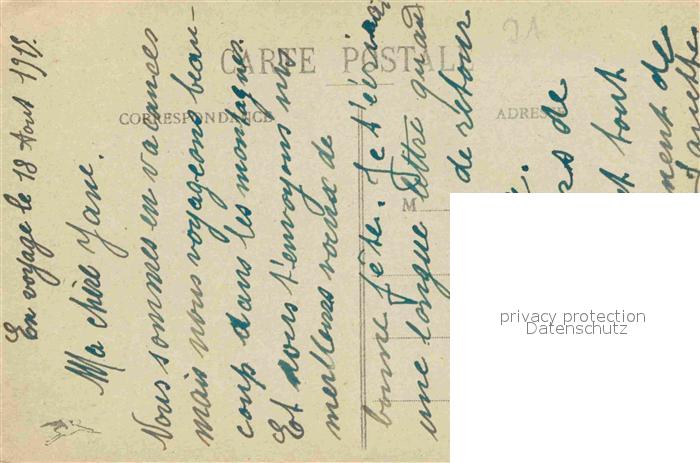 CARTE POSTALE
CORRESPONDANCE
ADRESSE
M
21
En voyage le 18 Aout 191
Ma chère Jane.
Nous sommes en vacances
mais nous voyageons beau-
coup dans les montagnes.
Et vous t'envoyons nos
meilleurs voeux de
bonne fête. Je t'écrirai
une longue lettre quand
de retour
de
tout
de
privacy protection
Datenschutz